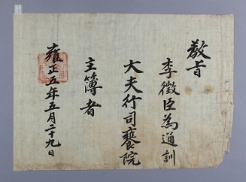 敎旨
李徵臣為通訓
大夫行司饔院
主簿者
雍正五年五月二十九日